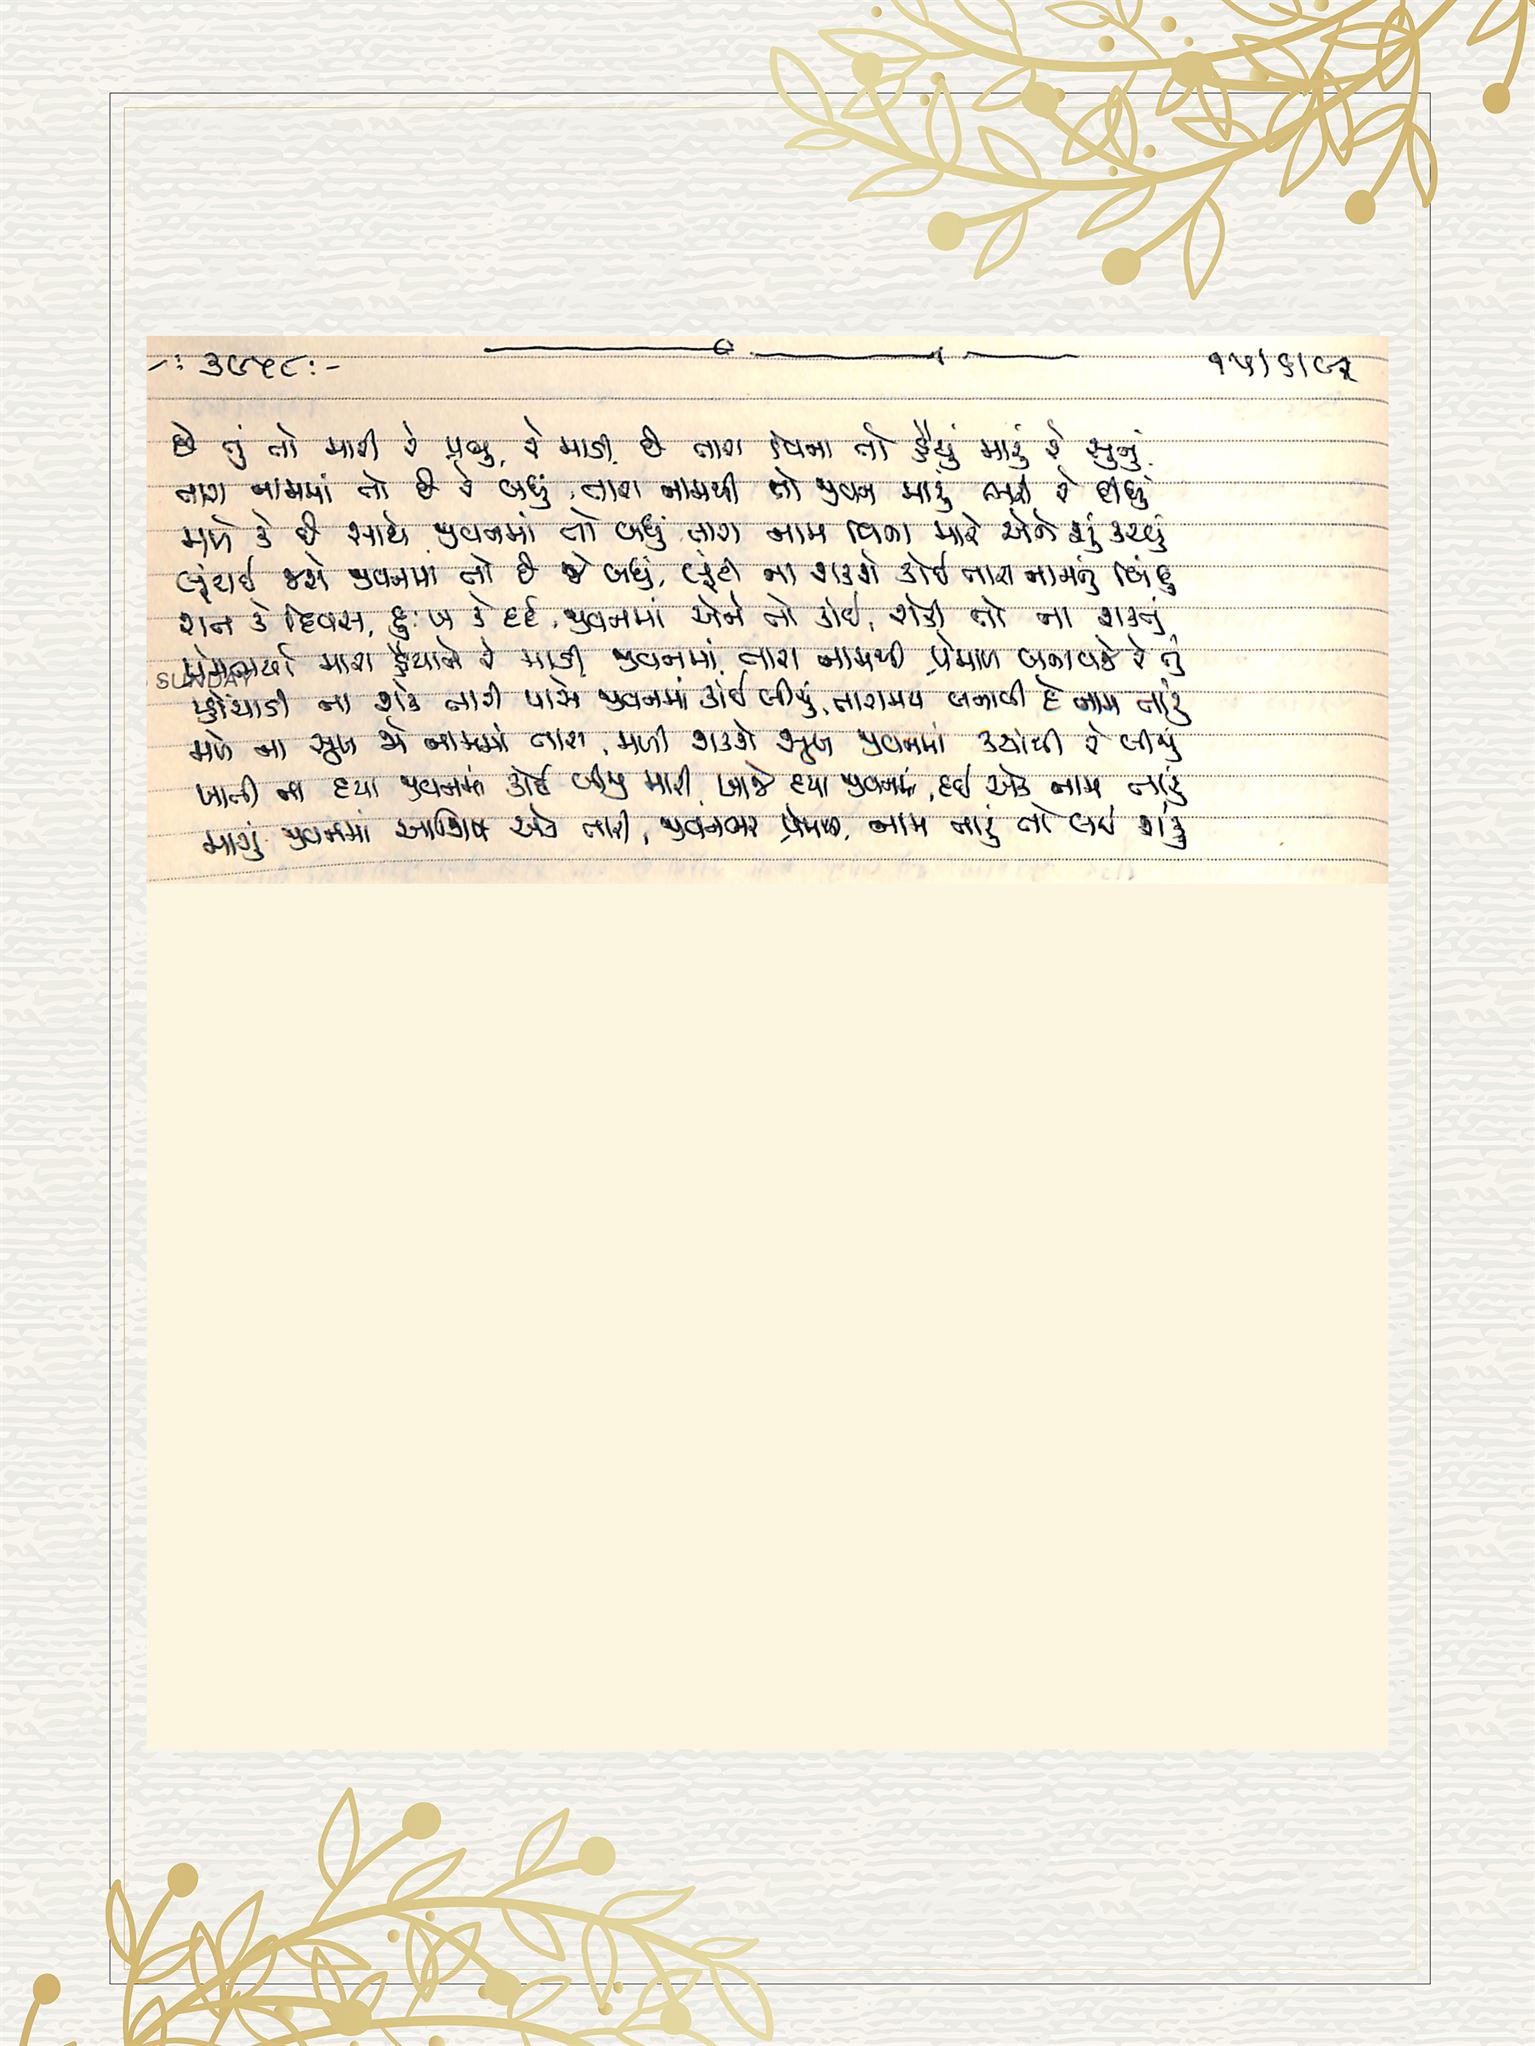 -: ૩૯૫૮ :- ૧૫/૬/૯૨
છે તું તો મારી રે પ્રભુ, રે માડી, છે તારા વિના તો હૈયું મારું રે સુનું
તારા નામમાં તો છે રે બધું, તારા નામથી તો જીવન મારું ભરી રે દીધું
મળે કે છે સાથે જીવનમાં તો બધું, તારા નામ વિના મારે એને શું કરવું
લૂંટાઈ જાશે જીવનમાં તો છે જે બધું, લૂંટી ના શકશે કોઈ તારા નામનું બિંદુ
રાત કે દિવસ, દુઃખ કે દર્દ, જીવનમાં એને તો કોઈ, રોકી તો ના શકતું
પ્રેમભર્યા મારા હૈયાને રે માડી જીવનમાં, તારા નામથી પ્રેમાળ બનાવજે રે તું
SUNDAY
પહોંચાડી ના શકે તારી પાસે જીવનમાં કોઈ બીજું, તારામય બનાવી દે નામ તારું
મળે ના સુખ જે નામમાં તારા, મળી શકશે સુખ જીવનમાં ક્યાંથી રે બીજું
ખાતી ના દયા જીવનમાં કોઈ બીજી મારી, ખાજે દયા જીવનમાં, દઈ એક નામ તારું
માગું જીવનમાં આશિષ એક તારી, જીવનભર પ્રેમથી, નામ તારું તો લઈ શકું